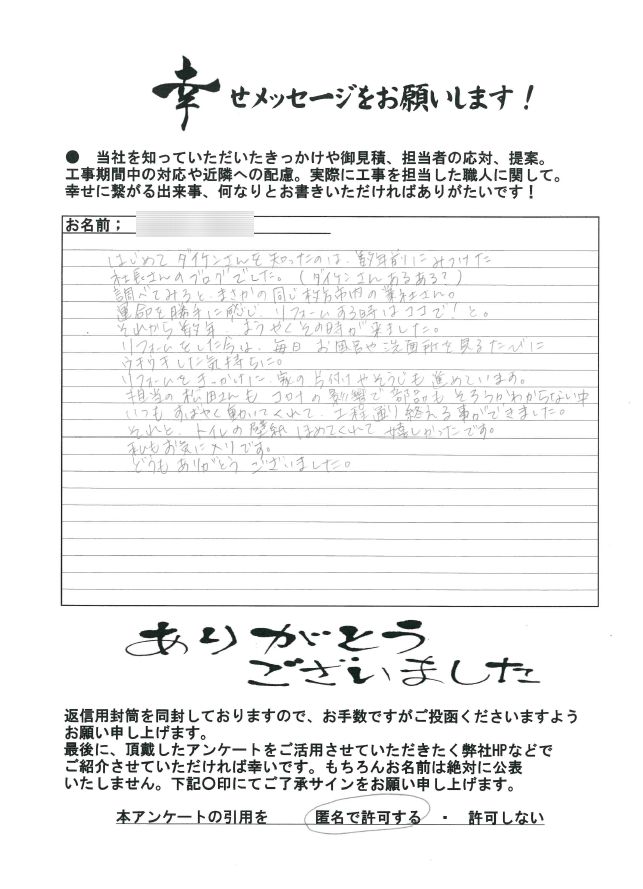 幸せメッセージをお願いします！
● 当社を知っていただいたきっかけや御見積、担当者の応対、提案。
工事期間中の対応や近隣への配慮。実際に工事を担当した職人に関して。
幸せに繋がる出来事、何なりとお書きいただければありがたいです！
お名前；
はじめてダイケンさんを知ったのは、数年前にみつけた
社長さんのブログでした。（ダイケンさんあるある？）
調べてみると、まさかの同じ枚方市内の業社さん。
運命を勝手に感じ、リフォームする時はココで！と。
それから数年、ようやくその時が来ました。
リフォームをした今は、毎日お風呂や洗面所を見るたびに
ウキウキした気持ちに。
リフォームをきっかけに、家の片付けやそうじも進めています。
担当の松田さんもコロナの影響で部品もそろうかわからない中
いつもすばやく動いてくれて、工程通り終える事ができました。
それと、トイレの壁紙ほめてくれて嬉しかったです。
私もお気に入りです。
どうもありがとうございました。
ありがとう
ございました
返信用封筒を同封しておりますので、お手数ですがご投函くださいますよう
お願い申し上げます。
最後に、頂戴したアンケートをご活用させていただきたく弊社HPなどで
ご紹介させていただければ幸いです。もちろんお名前は絶対に公表
いたしません。下記〇印にてご了承サインをお願い申し上げます。
本アンケートの引用を 匿名で許可する ・ 許可しない